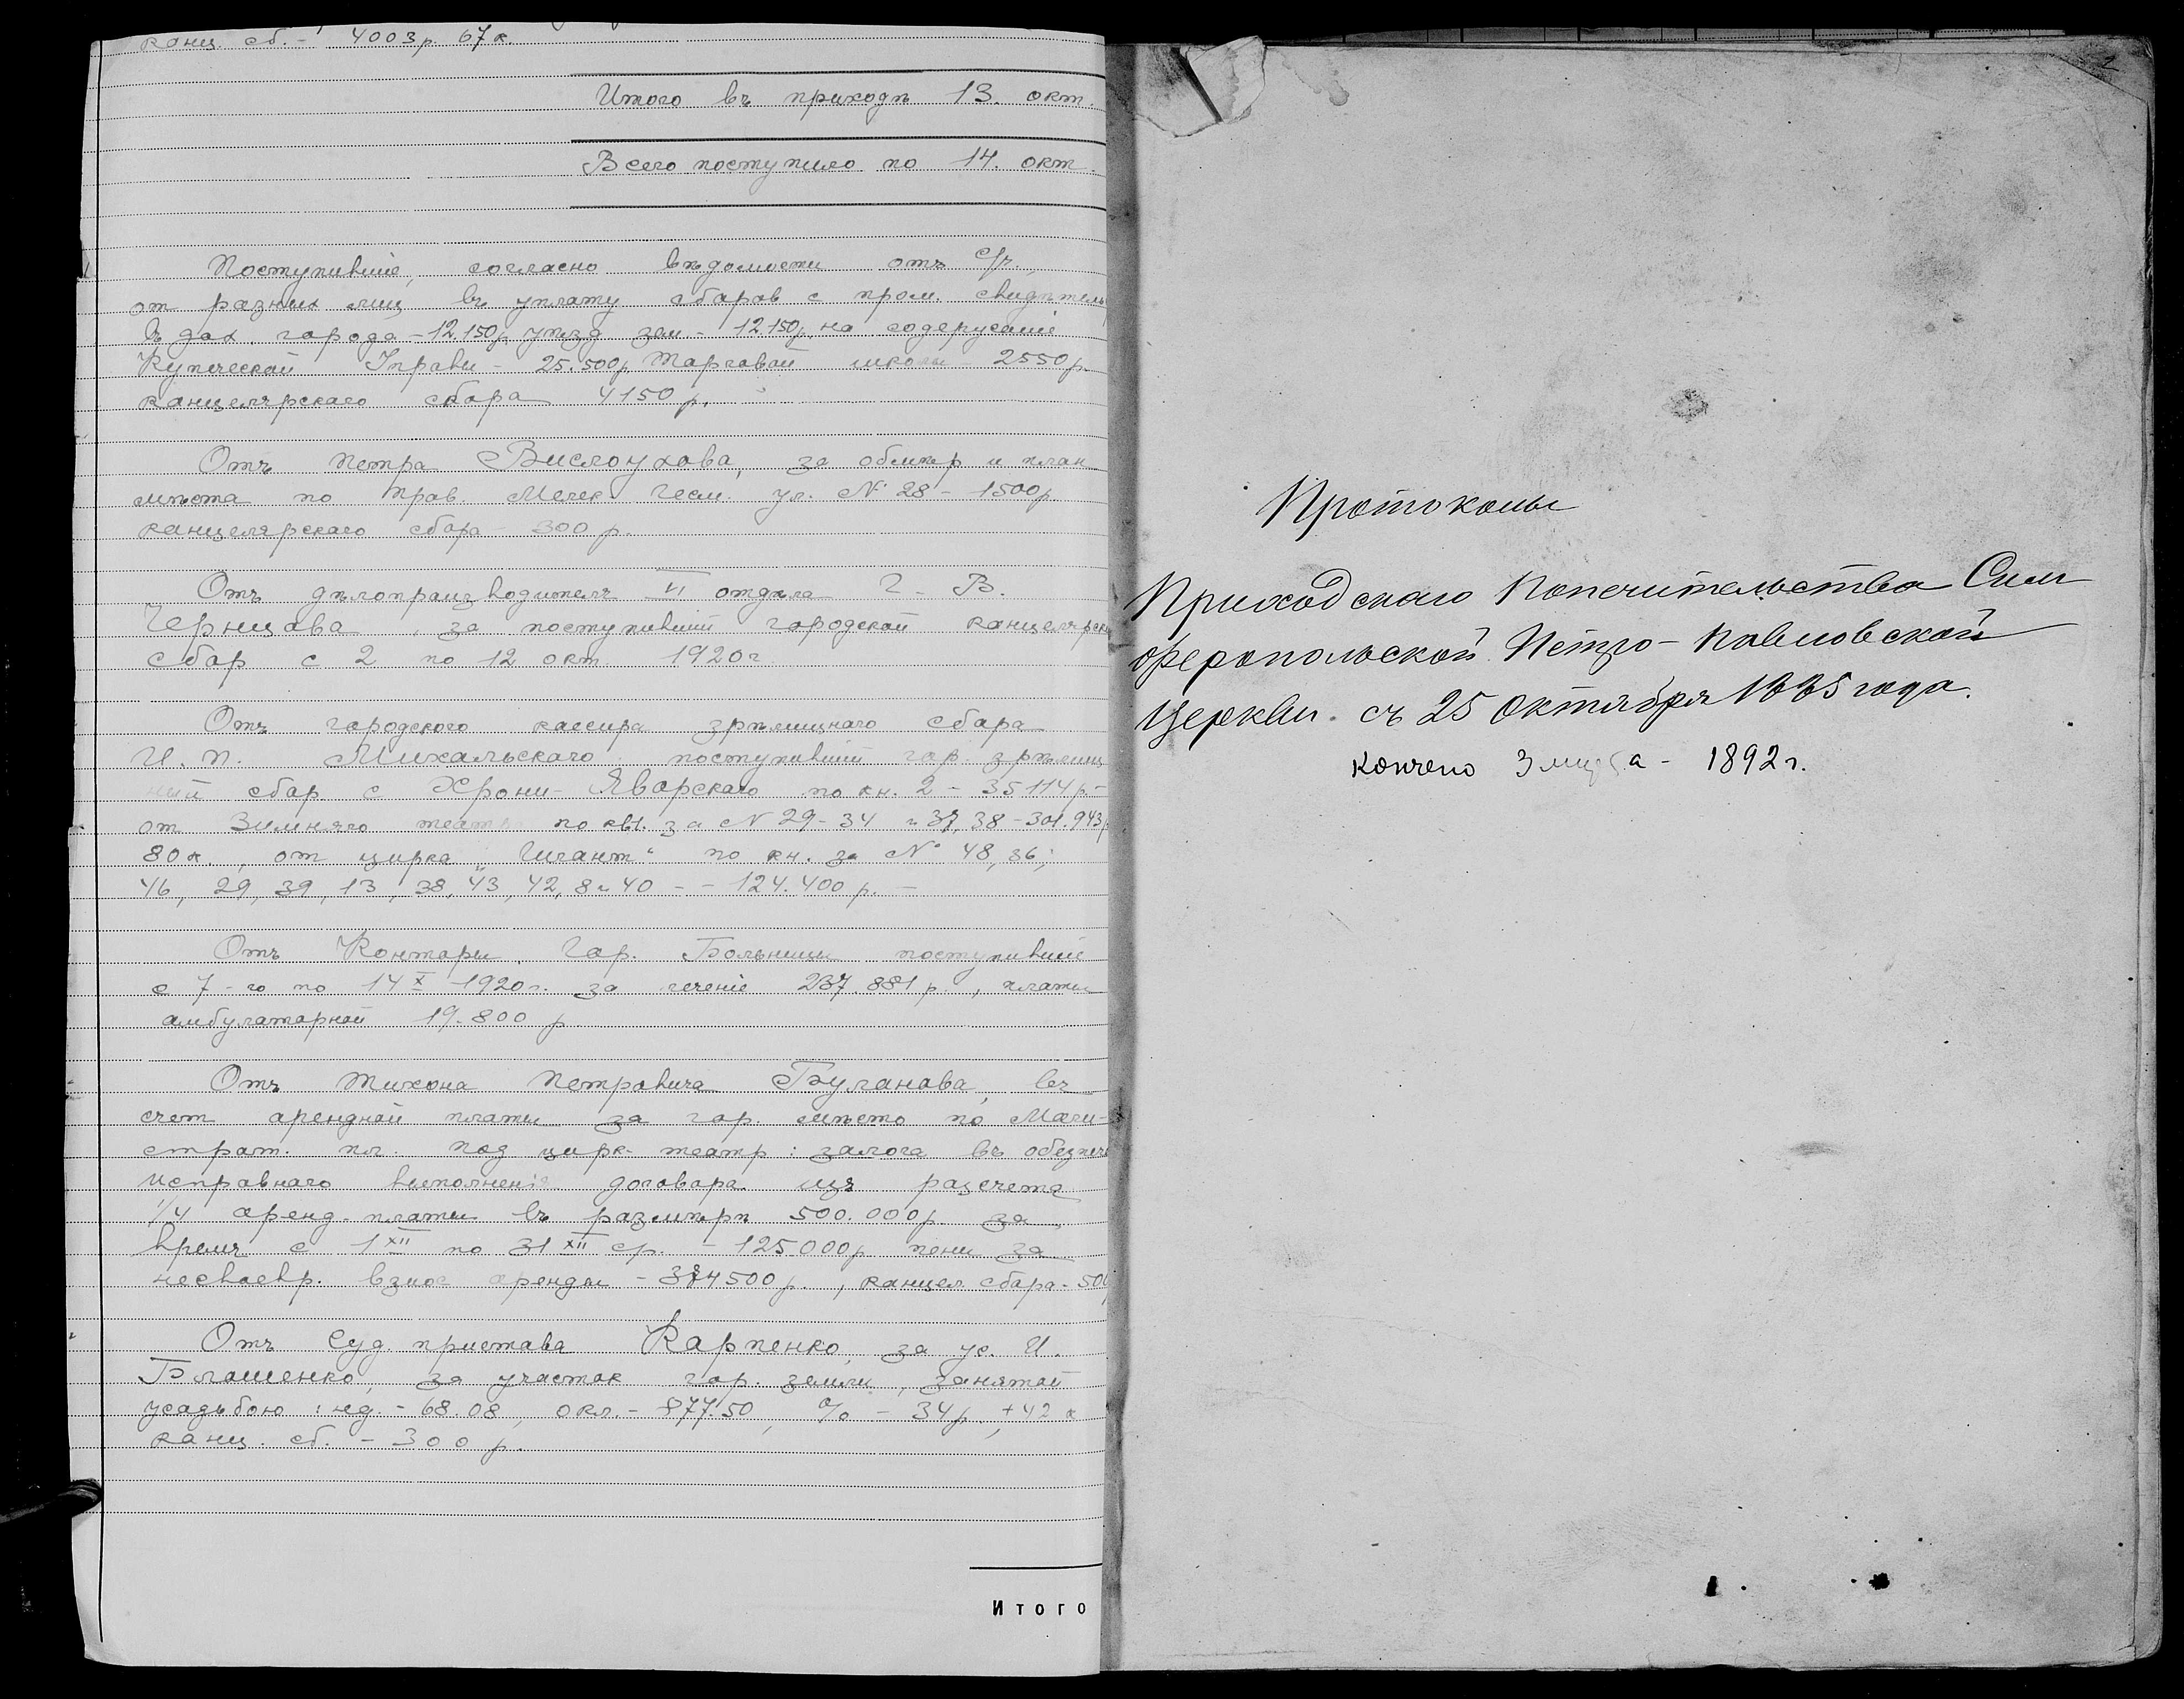 канц. сб. - 4003 р. 67 к.
Итого въ приходѣ 13. окт.
Всего поступило по 14. окт.
Поступившіе, согласно вѣдомости отъ с/г.,
от разных лиц въ уплату сборов с пром. свидѣтель
въ дох. города - 12.150 р. уѣзд. зем. - 12.150 р, на содержаніе
Купеческой Управы - 25.500 р, Торговой школы 2550 р.
канцелярскаго сбора 4150 р.
Отъ Петра Вислоухова, за обмѣр и план
мѣста по прав. Мечек. Чесм. ул. № 28 - 1500 р.
канцелярскаго сбора - 300 р.
Отъ дѣлопроизводителя VI отдѣла Г. В.
Чернцова, за поступившій городской канцелярскі
сбор с 2 по 12 окт. 1920 г.
Отъ городского кассира зрѣлищнаго сбора
И. П. Михальскаго поступившій гор. зрѣлищ
ный сбор с Хрони-Яворскаго по кн. 2 - 35114 р. -
от Зимняго театра по кв. за № 29 - 34 и 37, 38 - 301.943 р
80 к., от цирка „Гигант“ по кн. за № 48, 36,
46, 29, 39, 13, 38, 43, 42, 8 и 40 - - 124.400 р. -
Отъ Конторы Гор. Больницы поступившіе
с 7-го по 14 X 1920 г. за леченіе 237.881 р., платы
амбулаторной 19.800 р.
Отъ Тихона Петровича Буланова, въ
счет арендной платы за гор. мѣсто по Маги-
страт. пл. под цирк-театр: залога въ обезпече
исправнаго выполненія договора изъ разсчета
1/4 аренд. платы въ размѣрѣ 500.000 р. за
время с 1 XII по 31 XII ср. - 125000 р пени за
несвоевр. взнос аренды - 374500 р., канцел. сбора - 500
Отъ Суд. пристава Карпенко, за ус. И.
Блошенко, за участок гор. земли, занятой
усадьбою: нед. - 68.08, окл. - 877.50, % - 34 р, + 42 к
канц. сб. - 300 р.
Итого
2
Протоколы
Приходскаго Попечительства Сим
феропольской Петро-Павловской
Церкви. съ 25 Октября 1885 года.
кончено 3 1892 г.